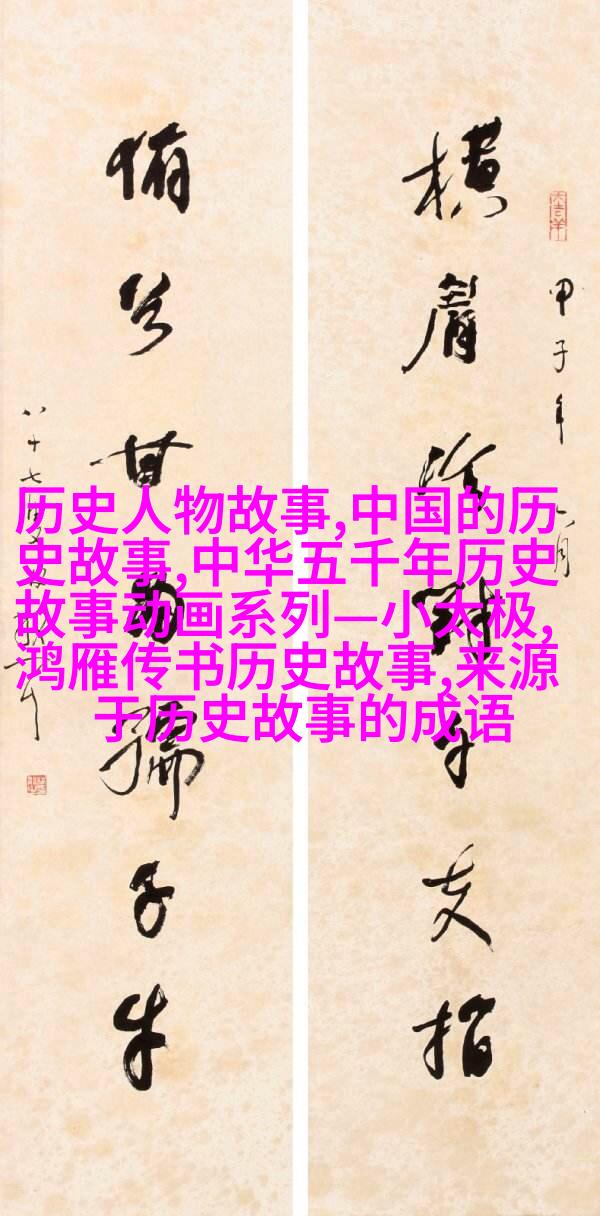 历史人物故事,中国的历
史故事,中华五千年历史
故事动画系列—小太极,
鸿雁传书历史故事,来源
于历史故事的成语
甲子年
横眉冷对千夫指
俯首甘为孺子牛
八十七